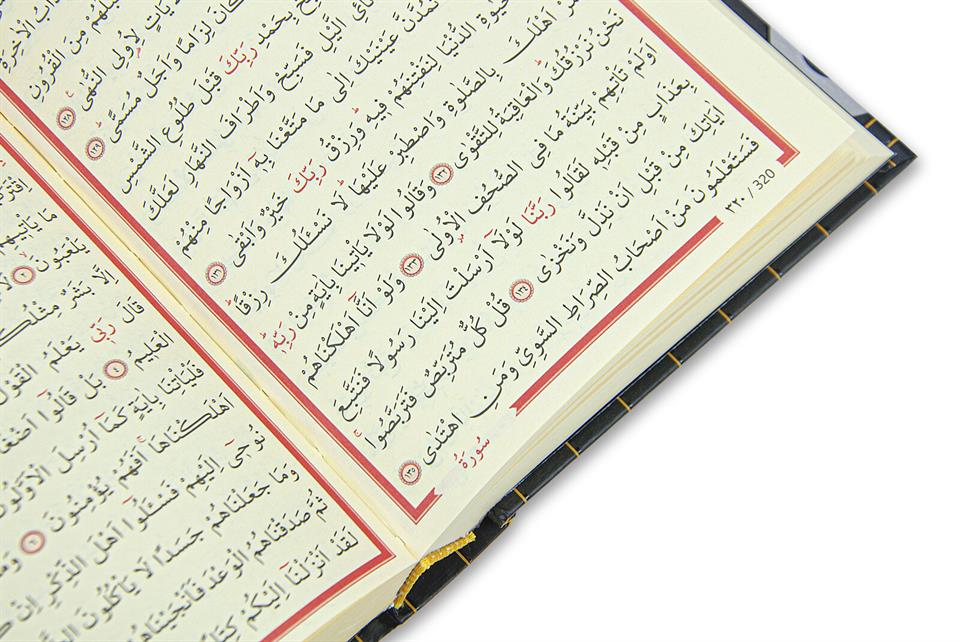 الْقُرُونِ مِنَ
لِاُو۬لِى النُّهٰى ﴿١٢٨﴾
كَانَ لِزَامًا وَاَجَلٌ مُسَمًّى ﴿١٢٩﴾
بِحَمْدِ رَبِّكَ قَبْلَ طُلُوعِ الشَّمْسِ
الَّيْلِ فَسَبِّحْ وَاَطْرَافَ النَّهَارِ لَعَلَّكَ
تَمُدَّنَّ عَيْنَيْكَ اِلٰى مَا مَتَّعْنَا بِه۪ٓ اَزْوَاجًا مِنْهُمْ
الدُّنْيَا لِنَفْتِنَهُمْ ف۪يهِ وَرِزْقُ رَبِّكَ خَيْرٌ وَاَبْقٰى ﴿١٣١﴾
اَهْلَكَ بِالصَّلٰوةِ وَاصْطَبِرْ عَلَيْهَا لَا نَسْـَٔلُكَ رِزْقًا
نَحْنُ نَرْزُقُكَ وَالْعَاقِبَةُ لِلتَّقْوٰى ﴿١٣٢﴾ وَقَالُوا لَوْلَا يَاْت۪ينَا بِاٰيَةٍ مِنْ رَبِّه۪
اَوَلَمْ تَاْتِهِمْ بَيِّنَةُ مَا فِى الصُّحُفِ الْاُو۫لٰى ﴿١٣٣﴾ وَلَوْ اَنَّٓا اَهْلَكْنَاهُمْ
بِعَذَابٍ مِنْ قَبْلِه۪ لَقَالُوا رَبَّنَا لَوْلَٓا اَرْسَلْتَ اِلَيْنَا رَسُولًا فَنَتَّبِعَ
اٰيَاتِكَ مِنْ قَبْلِ اَنْ نَذِلَّ وَنَخْزٰى ﴿١٣٤﴾ قُلْ كُلٌّ مُتَرَبِّصٌ فَتَرَبَّصُوا
فَسَتَعْلَمُونَ مَنْ اَصْحَابُ الصِّرَاطِ السَّوِىِّ وَمَنِ اهْتَدٰى ﴿١٣٥﴾
سُورَةُ
٣٢٠ / 320
مَا يَاْت۪يهِمْ
يَلْعَبُونَ ﴿٢﴾
اِلَّا بَشَرٌ مِثْلُكُمْ
قَالَ رَبّ۪ى يَعْلَمُ الْقَوْلَ
الْعَل۪يمُ ﴿٤﴾ بَلْ قَالُٓوا اَضْغَاثُ
فَلْيَاْتِنَا بِاٰيَةٍ كَمَٓا اُرْسِلَ الْاَوَّلُونَ
اَهْلَكْنَاهَا اَفَهُمْ يُؤْمِنُونَ ﴿٦﴾
نُوح۪ٓى اِلَيْهِمْ فَسْـَٔلُٓوا اَهْلَ الذِّكْرِ اِنْ
وَمَا جَعَلْنَاهُمْ جَسَدًا لَا يَاْكُلُونَ
ثُمَّ صَدَقْنَاهُمُ الْوَعْدَ فَاَنْجَيْنَاهُمْ
لَقَدْ اَنْزَلْنَٓا اِلَيْكُمْ